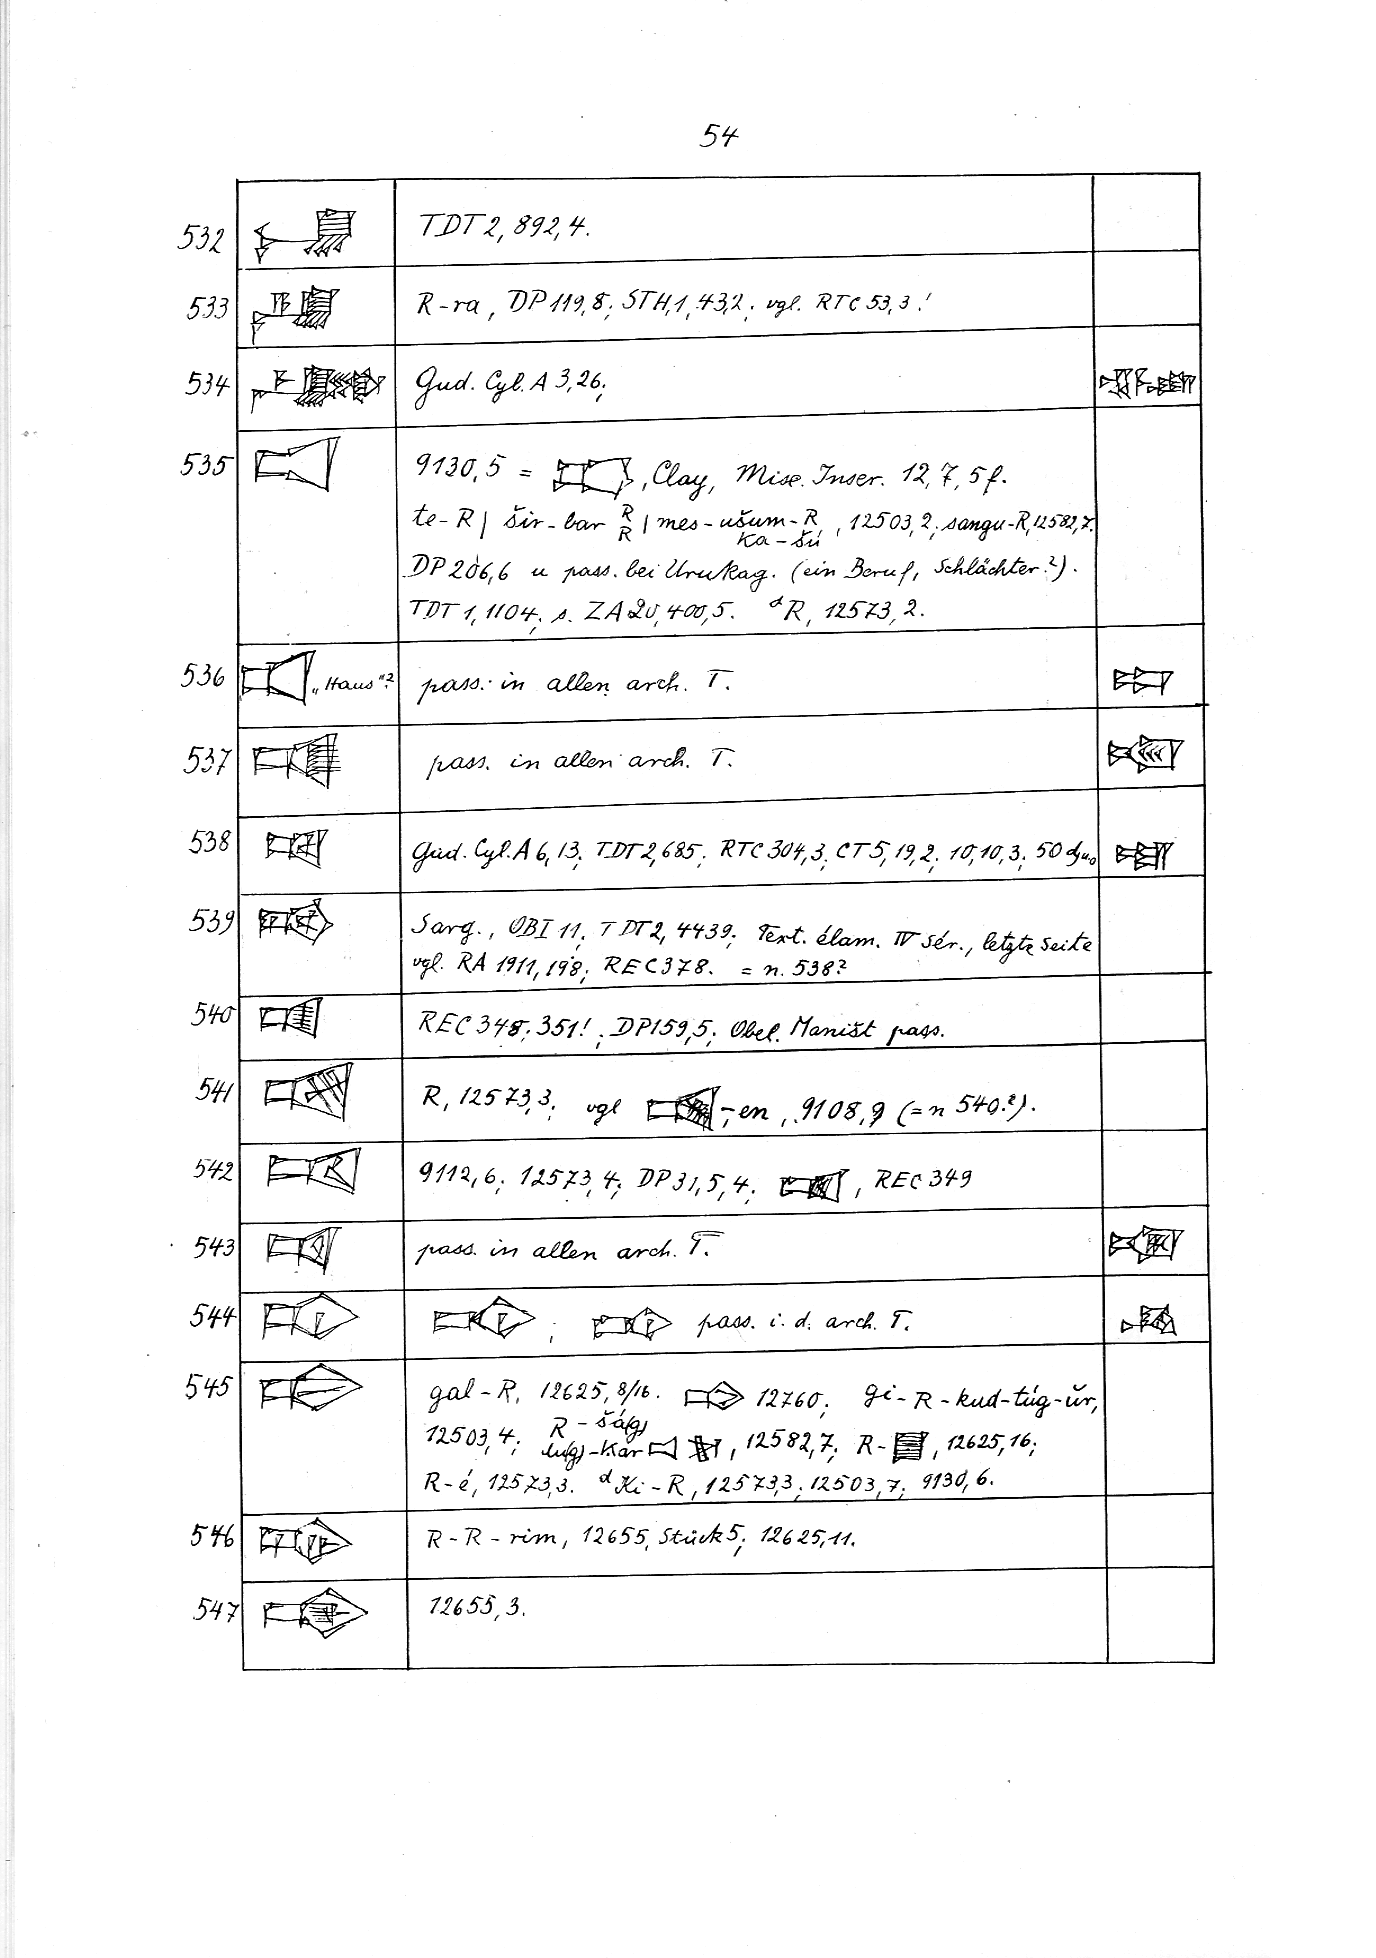 54
532 TDT 2, 892, 4.
533 R-ra, DP 119, 8; STH, 1, 43,2; vgl. RTC 53, 3!
534 Gud. Cyl. A 3,26;
535 9130, 5 = , Clay, Misc. Inscr. 12, 7, 5 f.
te-R | šir-bar R R | mes-ušum-R, 12503, 2; sangu-R, 12582,7.
ka-šú
DP 206,6 u pass. bei Urukag. (ein Beruf, Schlächter?).
TDT 1, 1104; s. ZA 20, 400, 5. ᵈR, 12573, 2.
536 „Haus"? pass. in allen arch. T.
537 pass. in allen arch. T.
538 Gud. Cyl. A 6, 13; TDT 2, 685; RTC 304, 3; CT 5, 19, 2; 10, 10, 3; 50
539 Sarg., OBI 11; TDT 2, 4439; Text. élam. IV sér., letzte Seite
vgl. RA 1911, 198; REC 378. = n. 538?
540 REC 348; 351!; DP 159, 5; Obel. Maništ pass.
541 R, 12573, 3; vgl -en, 9108, 9 (= n 540?).
542 9112, 6; 12573, 4; DP 31, 5, 4; , REC 349
543 pass. in allen arch. T.
544 ; pass. i. d. arch. T.
545 gal-R, 12625, 8/16. 12760; gi-R-kud-túg-úr,
12503, 4; R-šá(g) lu(g)-kár , 12582, 7; R- , 12625, 16;
R-é, 12573,3. ᵈKi-R, 12573,3; 12503, 7; 9130, 6.
546 R-R-rim, 12655, Stück 5; 12625, 11.
547 12655, 3.